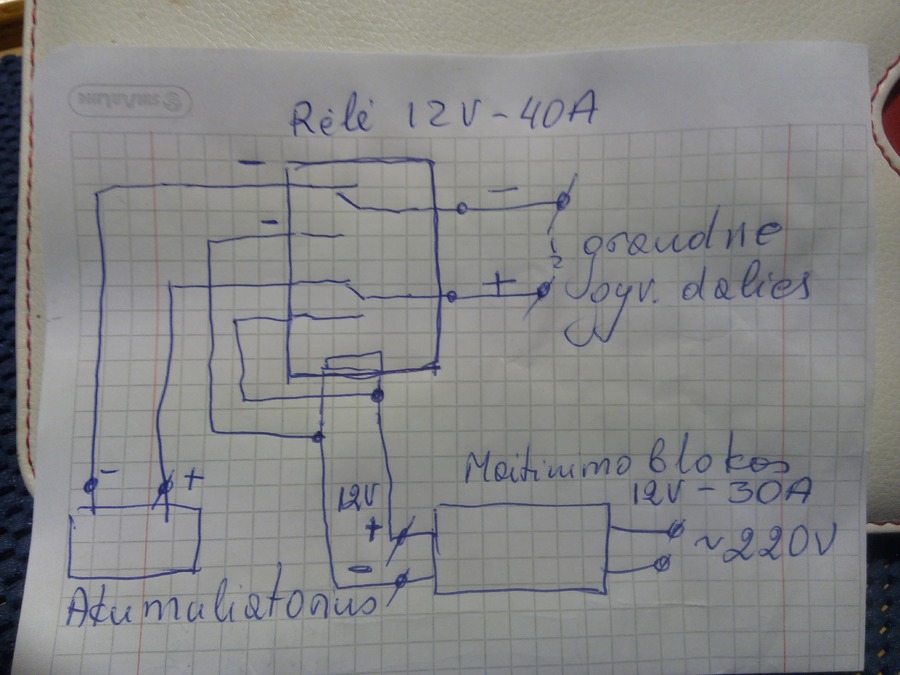 Rėlė 12V-40A
-
-
-
+
grandne
gyv. dalies
-
+
Maitinimo blokas
12V-30A
12V
+
-
~220V
Akumuliatorius